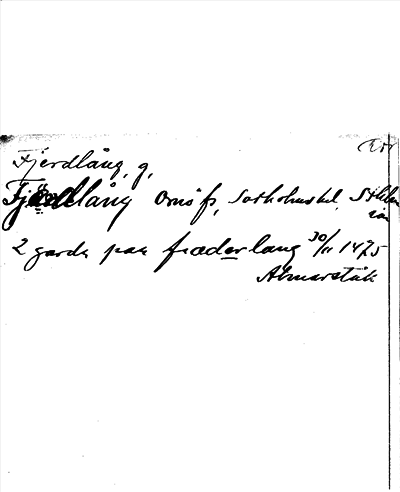 Fjerdlång, g,
Fjärdlång Ornö sn, Sotholms hd, Sthlms
län
2 garda paa fiæderlang 30/11 1475
Almarstäk